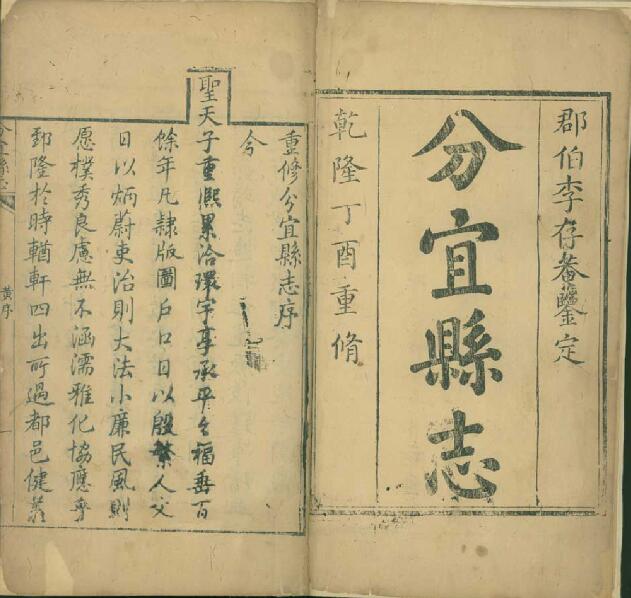 郡伯李存菴鑒定
分宜縣志
乾隆丁酉重脩
重修分宜縣志序
今
聖天子重熙累洽環宇享承平之福垂百
餘年凡隷版圖戶口日以殷繁人文
日以炳蔚吏治則大法小廉民風則
愿樸秀良慮無不涵濡雅化協應乎
郅隆於時輶軒四出所過都邑健
分宜縣志
黃序
一